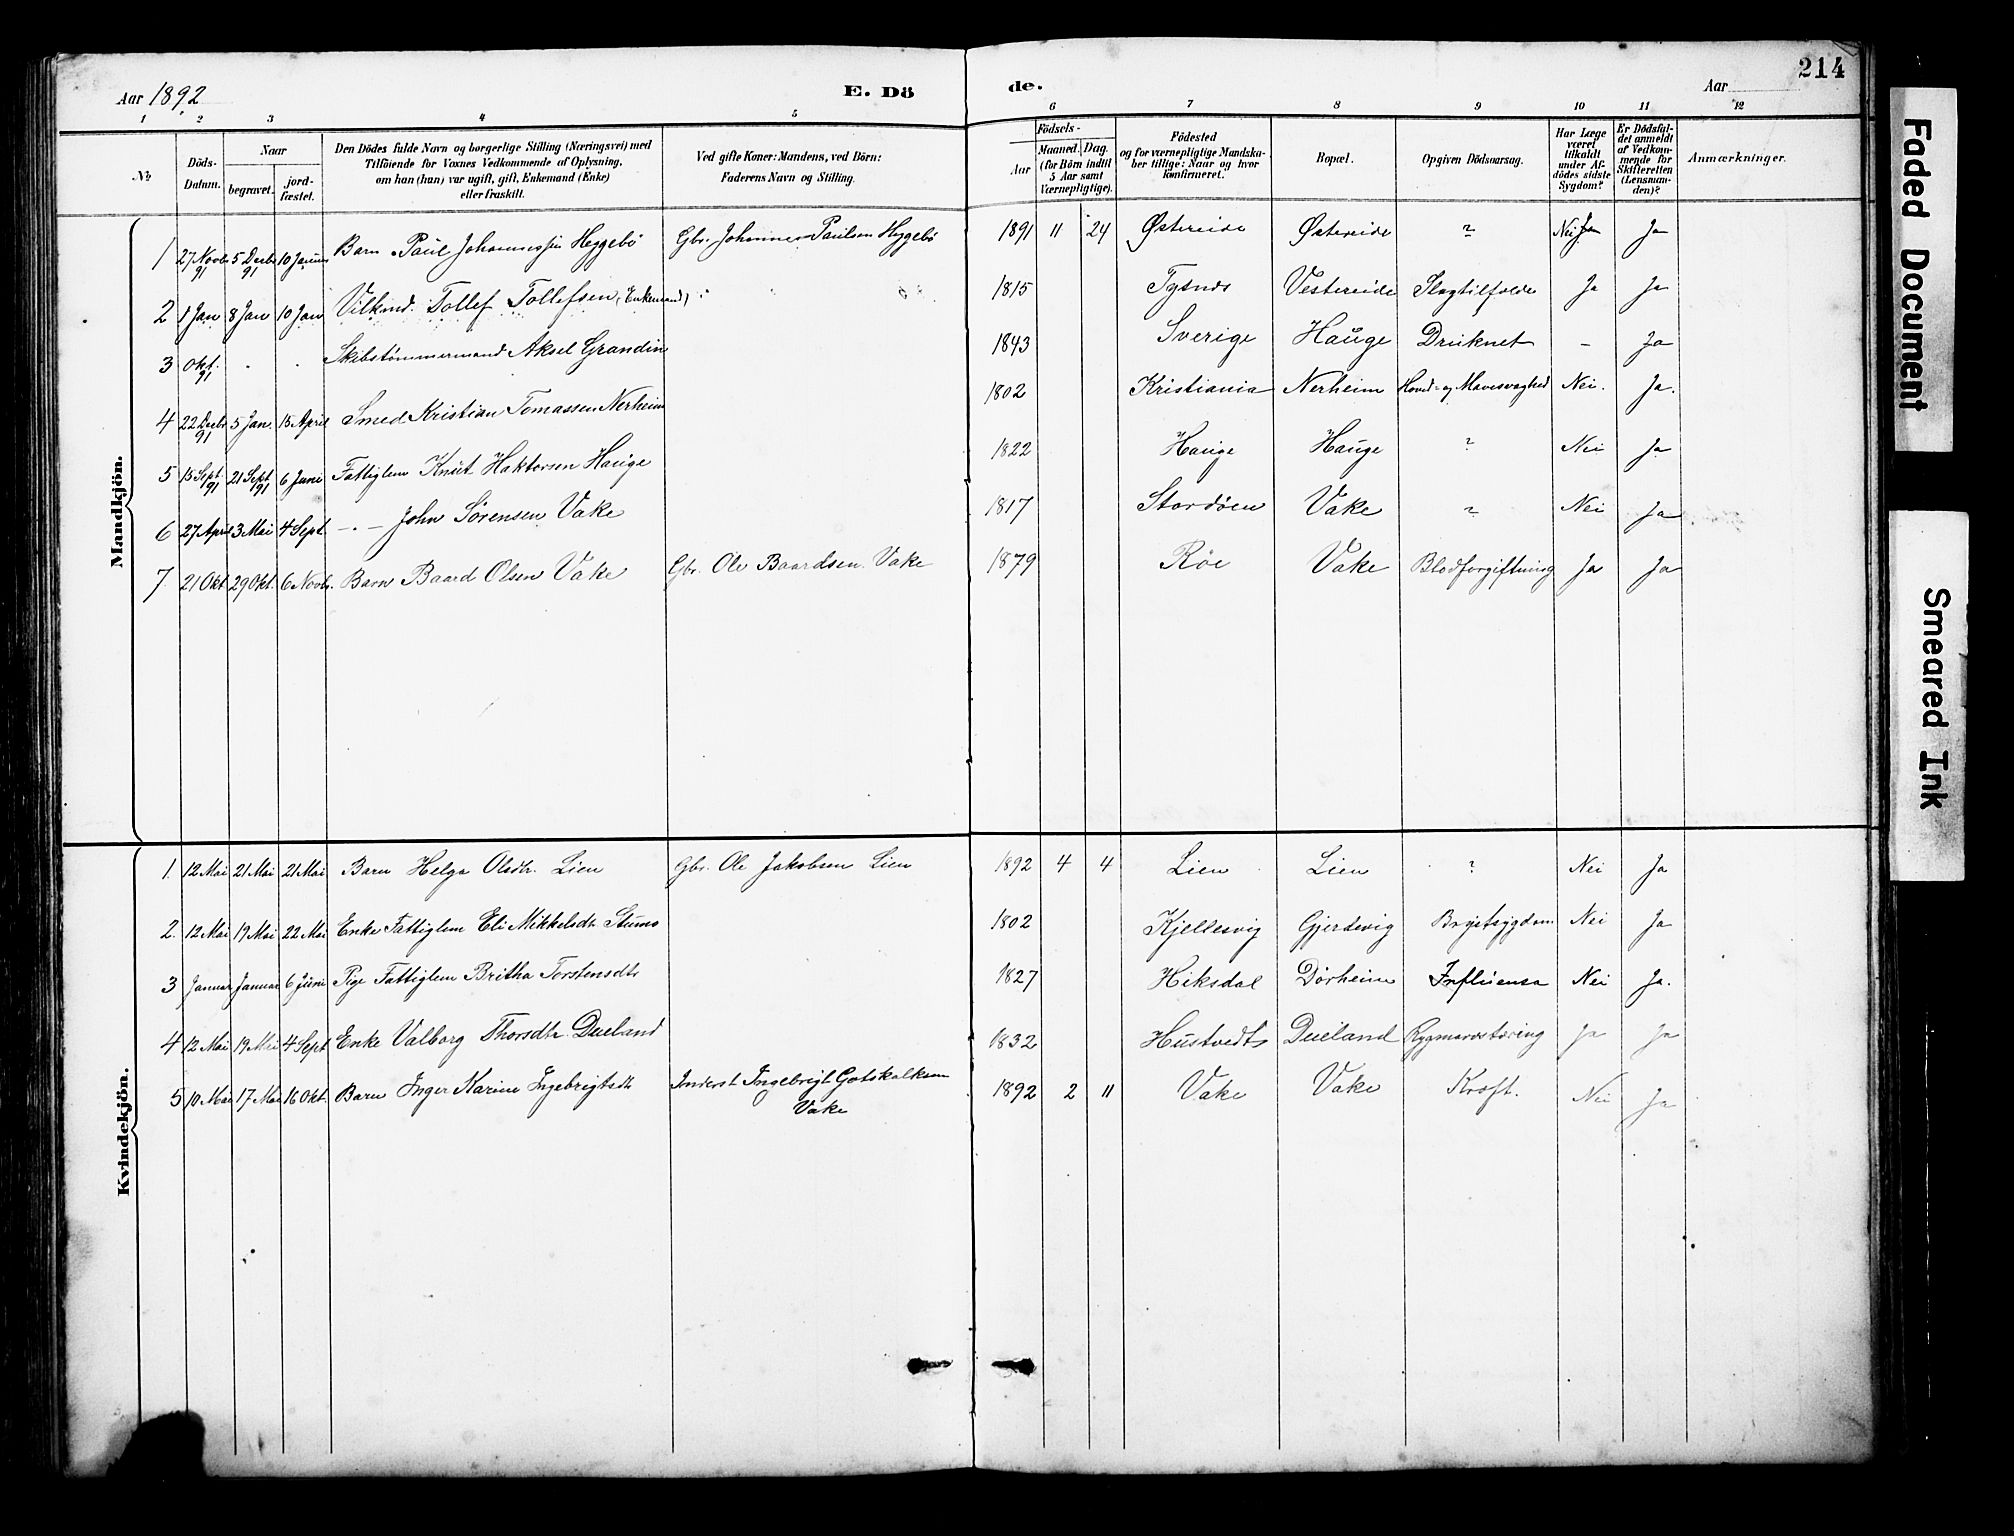 Aar 1892
E. Dö
de.
Aar
214
1 2 3 4 5 6 7 8 9 10 11 12
№
Döds-Datum.
Naar
begravet.
jord-fæstet.
Den Dödes fulde Navn og borgerlige Stilling (Næringsvei) med
Tilföiende for Voxnes Vedkommende af Oplysning,
om han (hun) var ugift, gift, Enkemand (Enke)
eller fraskilt.
Ved gifte Koner: Mandens, ved Börn:
Faderens Navn og Stilling.
Födsels-
Aar
Maaned. Dag.
(for Börn indtil
5 Aar samt
Værnepligtige).
Födested
og for værnepligtige Mandska-
ber tillige: Naar og hvor
konfirmeret.
Bopæl.
Opgiven Dödsaarsag.
Har Læge
været
tilkaldt
under Af-
dödes sidste
Sygdom?
Er Dödsfal-
det anmeldt
af Vedkom-
mende for
Skifteretten
(Lensman-
den)?
Anmærkninger.
Mandkjön.
1 27 Novbr 91 5 Decbr 91 10 Januar Barn Paul Johannessen Heggebö Gbr. Johannes Paulsen Heggebö 1891 11 24 Østereide Østereide ? Nei Ja Ja
2 1 Jan 8 Jan 10 Jan Vilkind Tollef Tollefsen (Enkemand) 1815 Tysnes Vestereide Slagtilfælde Ja Ja
3 Okt. 91 . . Skibstømmermand Aksel Grandin 1843 Sverige Hauge Druknet – Ja
4 22 Decbr 91 5 Jan. 15 April Smed Kristian Tomassen Nerheim 1802 Kristiania Nerheim Hoved- og Mavesvaghed Nei. Ja.
5 15 Sept. 91 21 Sept 91 6 Juni Fattiglem Knut Haktorsen Hauge 1822 Hauge Hauge ? Nei Ja
6 27 April 3 Mai 4 Sept. –"– John Sørensen Vake 1817 Stordøen Vake ? Nei Ja
7. 21 Okt 29 Okt. 6 Novbr. Barn Baard Olsen Vake Gbr. Ole Baardsen Vake 1879 Røe Vake Blodforgiftning Ja Ja
Kvindekjön.
1. 12 Mai 21 Mai 21 Mai Barn Helga Olsdtr. Lien Gbr. Ole Jakobsen Lien 1892 4 4 Lien Lien ? Nei Ja
2. 12 Mai 19 Mai 22 Mai Enke Fattiglem Eli Mikkelsdtr Stumo 1802 Kjellesvig Gjerdevig Brystsygdom Nei Ja
3 Januar Januar 6 Juni Pige Fattiglem Britha Torstensdtr 1827 Hiksdal Dørheim Influensa Nei Ja.
4 12 Mai 19 Mai 4 Sept Enke Valborg Thorsdtr Dueland 1832 Hustvedt Dueland Rygmarvstæring Ja Ja
5 10 Mai 17 Mai 16 Okt. Barn Inger Marine Ingebrigtsdtr Inderst Ingebrigt Gotskalksen
Vake 1892 2 11 Vake Vake Kræft. Nei Ja
Faded Document
Smeared Ink